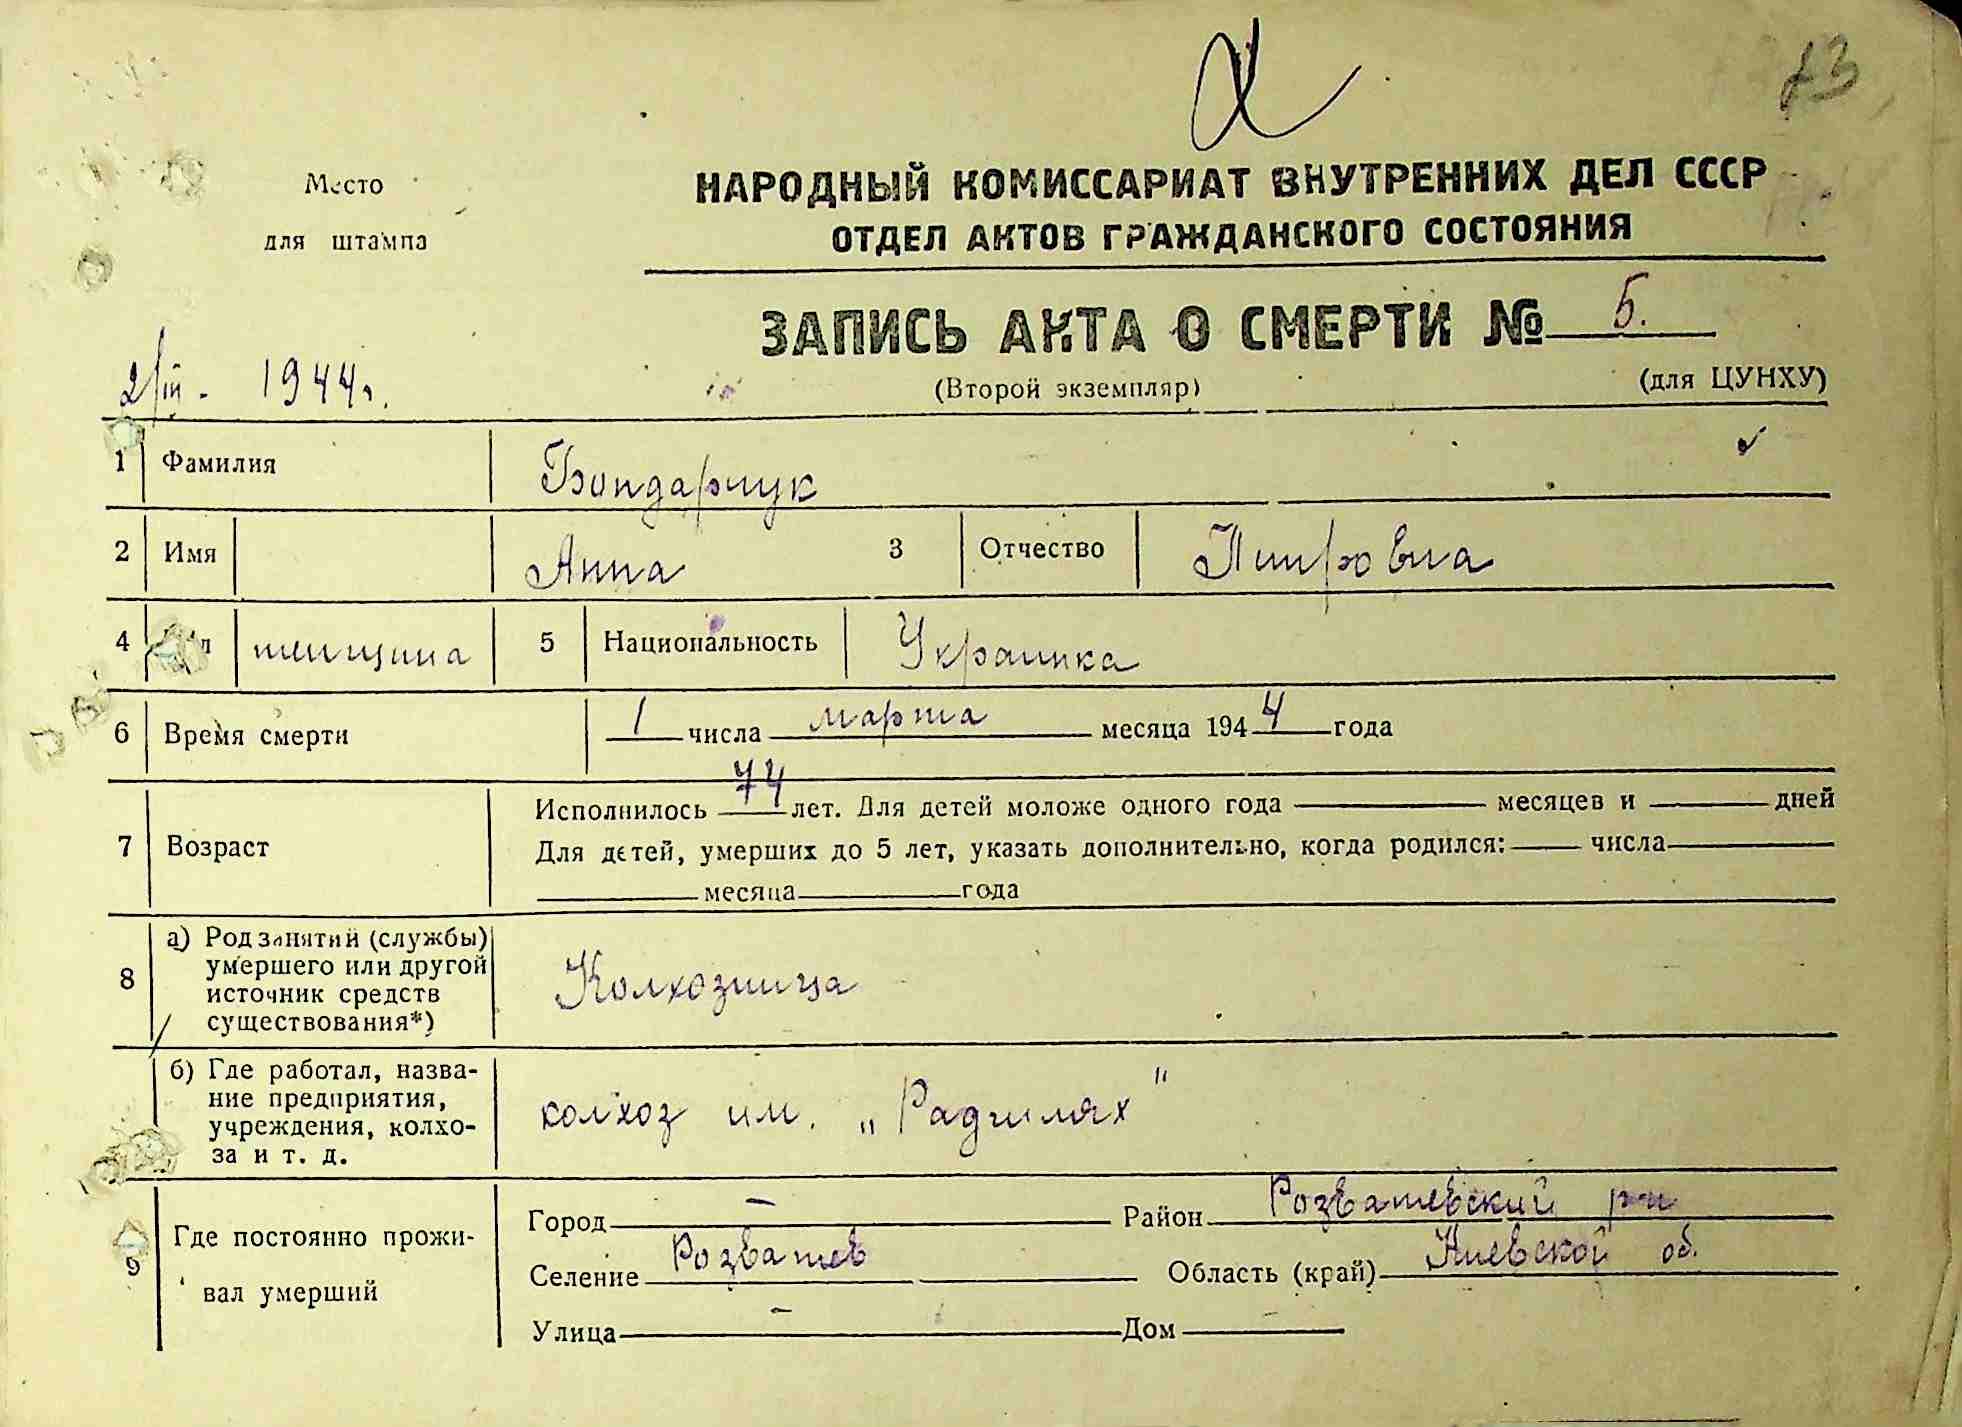 73
Место
для штампа
НАРОДНЫЙ КОМИССАРИАТ ВНУТРЕННИХ ДЕЛ СССР
ОТДЕЛ АКТОВ ГРАЖДАНСКОГО СОСТОЯНИЯ
ЗАПИСЬ АКТА О СМЕРТИ № 5.
2/III. 1944г.
(Второй экземпляр) (для ЦУНХУ)
1 Фамилия Бондарчук
2 Имя Анна 3 Отчество Петровна
4 Пол женщина 5 Национальность Украинка
6 Время смерти 1 числа марта месяца 1944 года
7 Возраст
Исполнилось 74 лет. Для детей моложе одного года месяцев и дней
Для детей, умерших до 5 лет, указать дополнительно, когда родился: числа
месяца года
8 а) Род занятий (службы)
умершего или другой
источник средств
существования*)
Колхозница
б) Где работал, назва-
ние предприятия,
учреждения, колхо-
за и т. д.
колхоз им.
9 Где постоянно прожи-
вал умерший
Город — Район Розважевский р-н
Селение Розважев Область (край) Киевской об.
Улица — Дом —